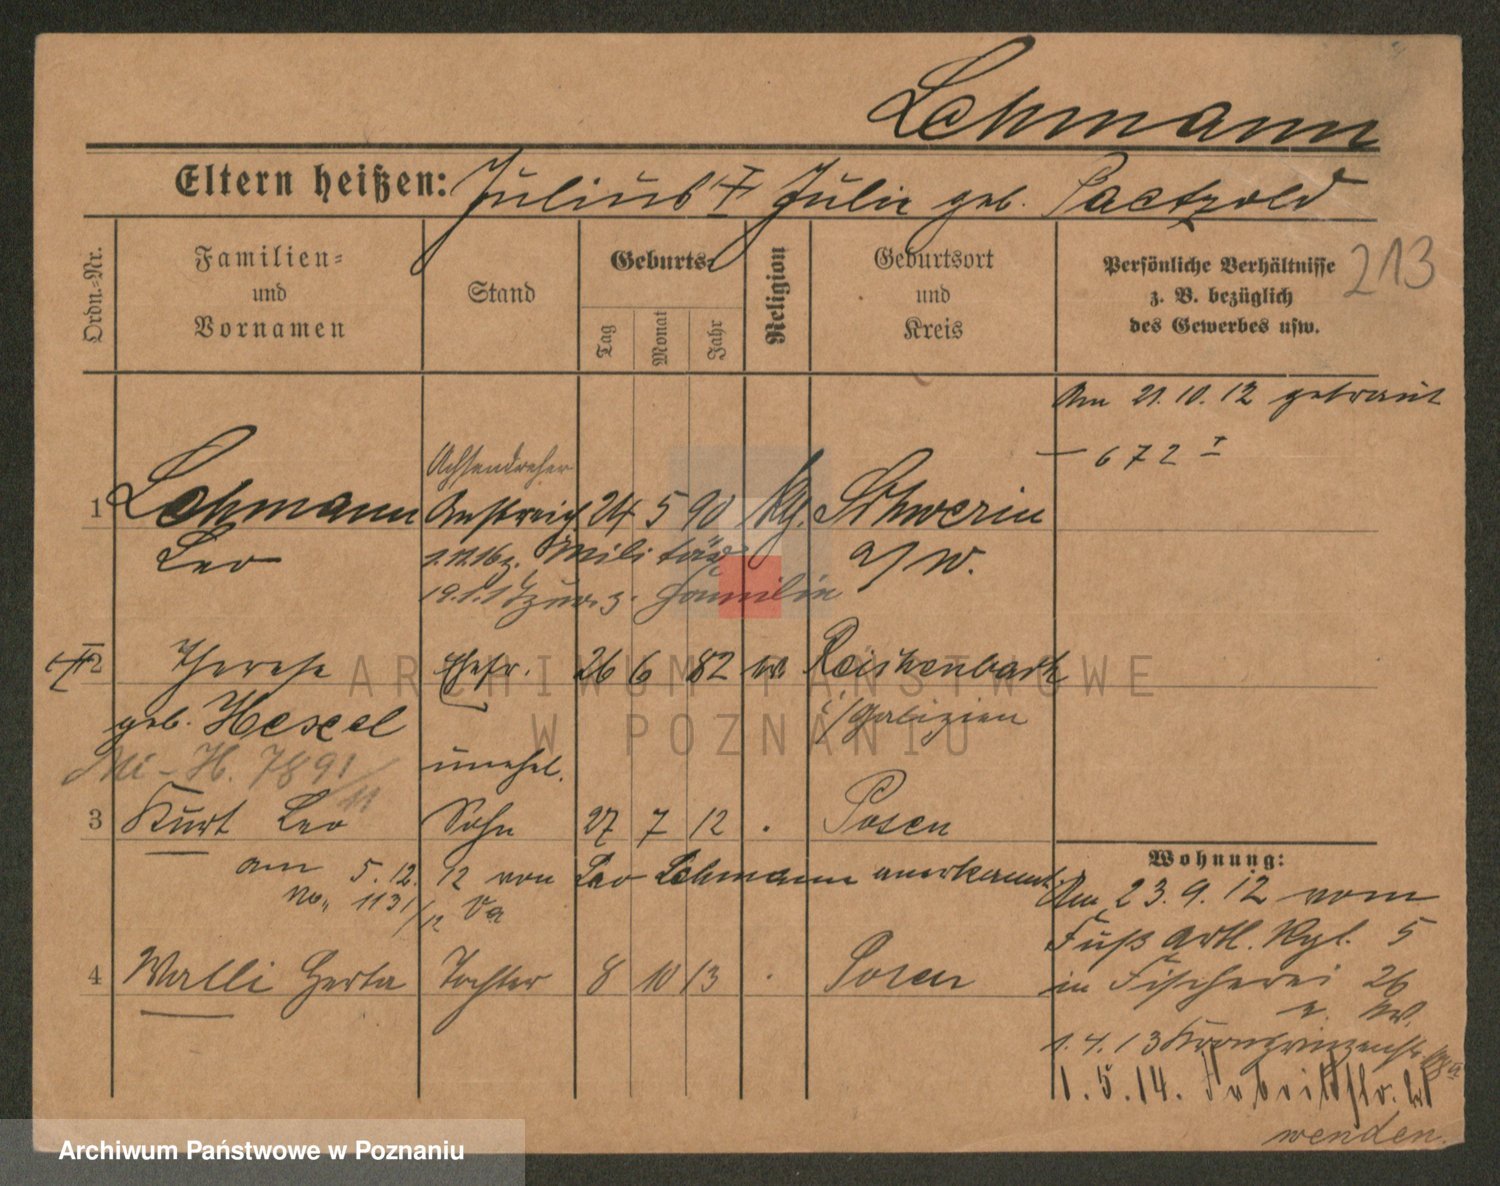 Lehmann
Eltern heißen: Julius † Julie geb. Paetzold
Ordn.-Nr.
Familien-
und
Vornamen
Stand
Geburts-
Tag
Monat
Jahr
Religion
Geburtsort
und
Kreis
Persönliche Verhältnisse
z. B. bezüglich
des Gewerbes usw.
213
Am 21.10.12 getraut
– 672 I
Achsendreher
1 Lehmann Anstreich 24 5 90 Schwerin
Leo Militär a/W.
Familie
2 Therese Ehefr. 26 6 82 Reichenbach
geb. Hescel i/Galizien
H. 7891/11
unehel.
3 Kurt Leo Sohn 27 7 12 . Posen
am 5.12.12 von Leo Lehmann anerkannt
No. 1131/12
4 Walli Herta Tochter 8 10 13 . Posen
Wohnung:
Am 23.9.12 vom
Fuß Artl. Rgt. 5
in Fischerei 26
1.4.13 Kronprinzenstr.
1.5.14.
wenden.
ARCHIWUM PAŃSTWOWE
W POZNANIU
Archiwum Państwowe w Poznaniu